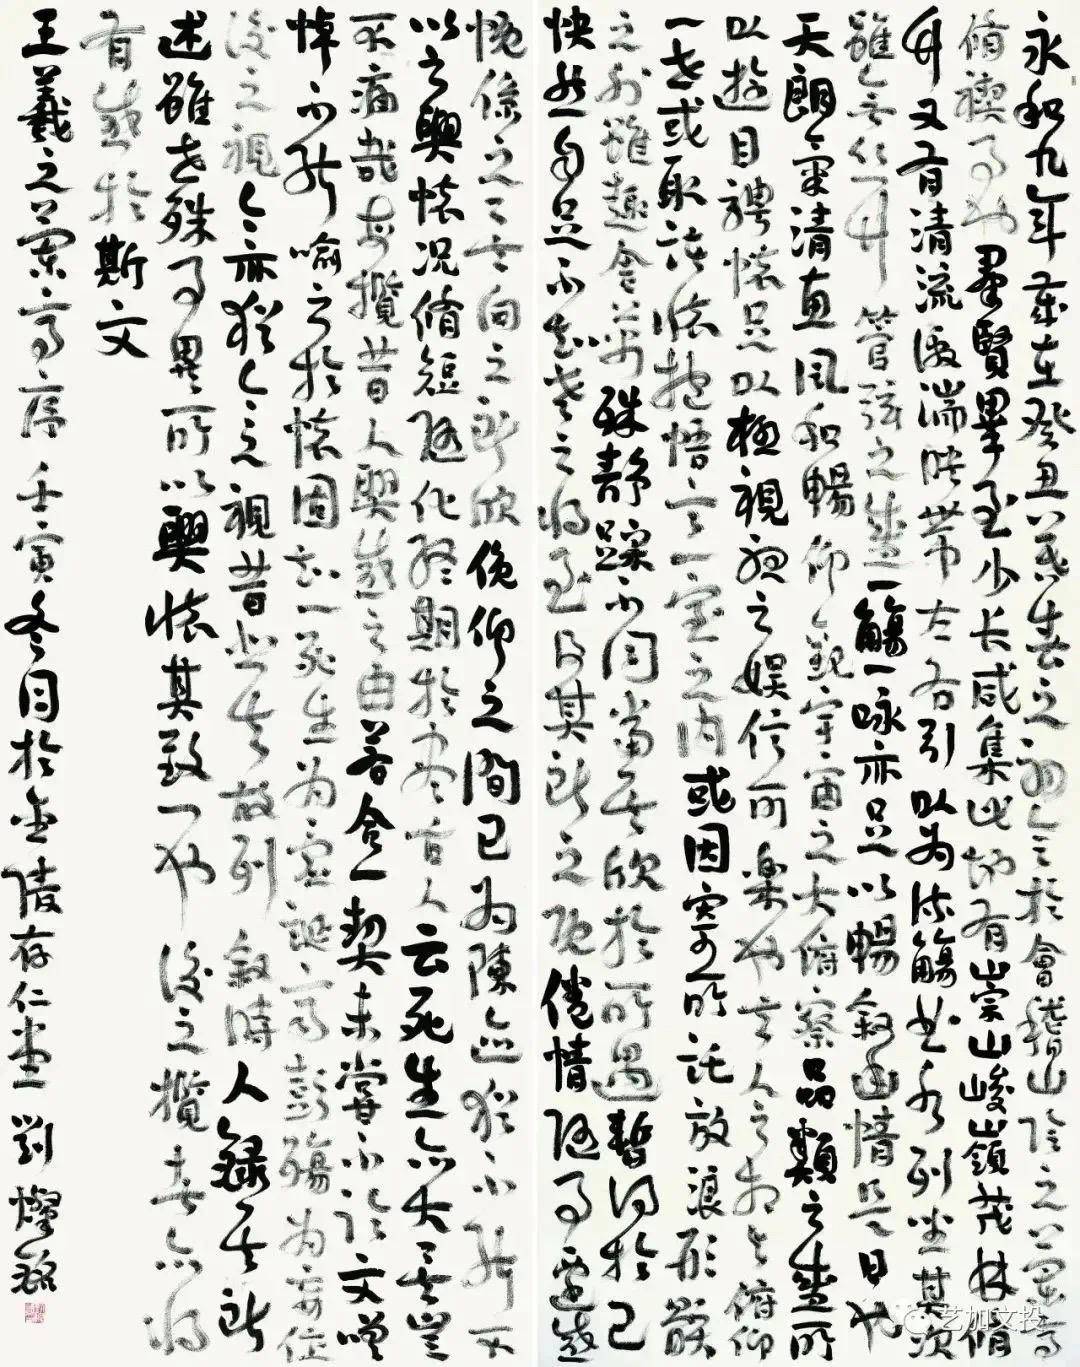 永和九年歲在癸丑暮春之初會於會稽山陰之蘭亭
脩禊事也群賢畢至少長咸集此地有崇山峻嶺茂林脩
竹又有清流激湍映帶左右引以為流觴曲水列坐其次
雖無絲竹管弦之盛一觴一詠亦足以暢敘幽情是日也
天朗氣清惠風和暢仰觀宇宙之大俯察品類之盛所
以遊目騁懷足以極視聽之娛信可樂也夫人之相與俯仰
一世或取諸懷抱悟言一室之內或因寄所託放浪形骸
之外雖趣舍萬殊靜躁不同當其欣於所遇暫得於己
快然自足不知老之將至及其所之既倦情隨事遷感
慨係之矣向之所欣俛仰之間已為陳迹猶不能不
以之興懷況脩短隨化終期於盡古人云死生亦大矣豈
不痛哉每攬昔人興感之由若合一契未嘗不臨文嗟
悼不能喻之於懷固知一死生為虛誕齊彭殤為妄作
後之視今亦猶今之視昔悲夫故列敘時人錄其所
述雖世殊事異所以興懷其致一也後之攬者亦將
有感於斯文
王羲之蘭亭序 壬寅冬月於金陵存仁堂 劉燦銘
艺加文投